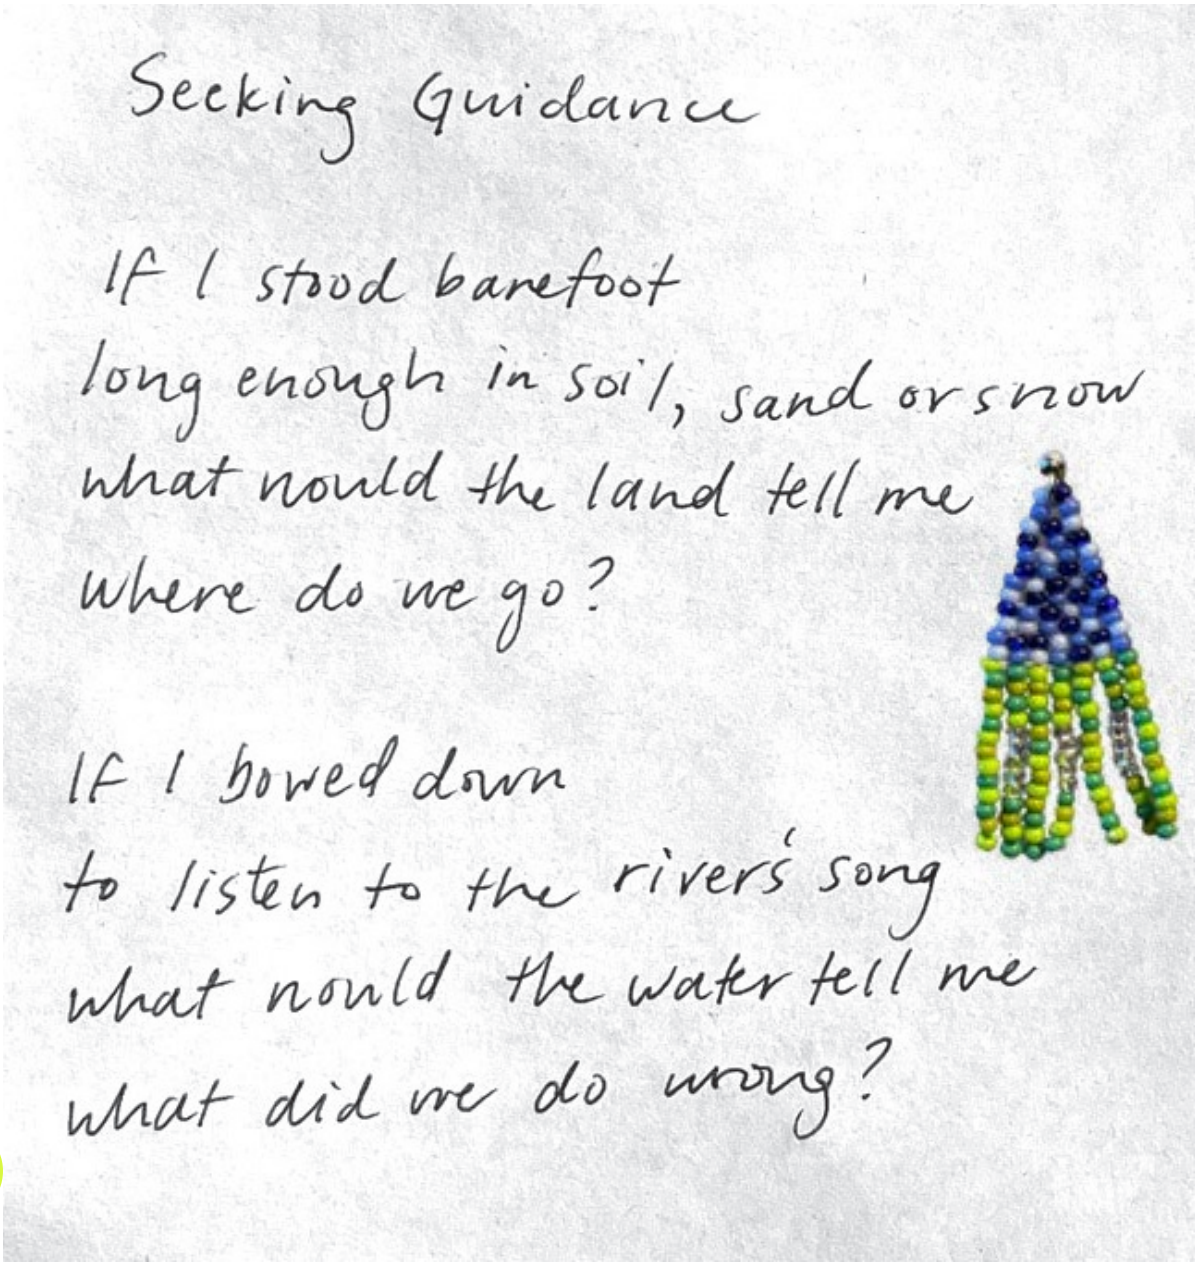 Seeking Guidance
If I stood barefoot
long enough in soil, sand or snow
what would the land tell me
where do we go?
If I bowed down
to listen to the river's song
what would the water tell me
what did we do wrong?